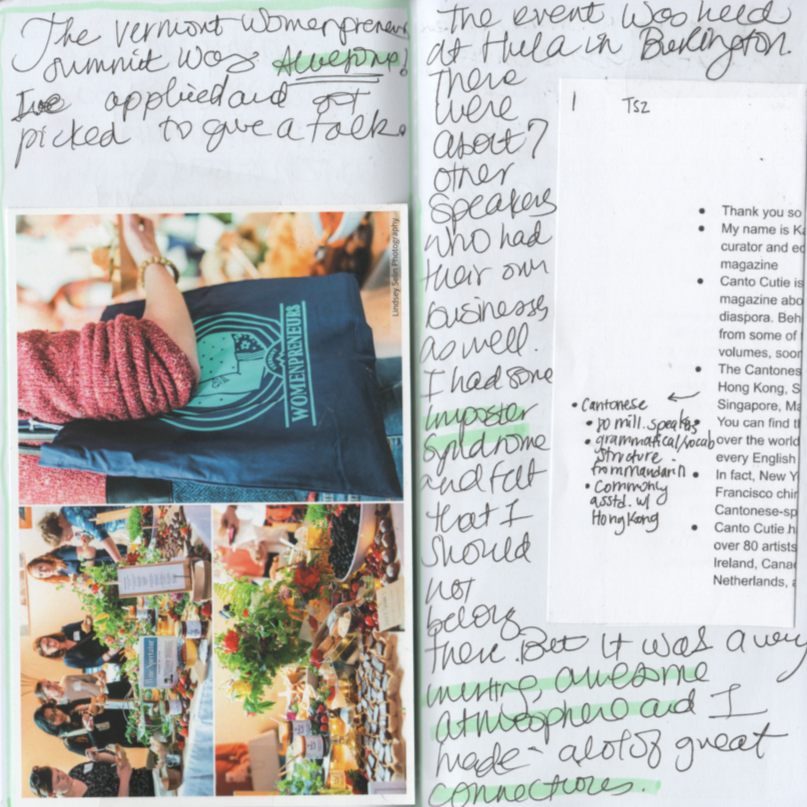 The Vermont Womenpreneurs
summit was Awesome!
I applied and got
picked to give a talk.
Lindsey Selin Photography
WOMENPRENEURS
The event was held
at Hula in Burlington.
There
were
about 7
other
speakers
who had
their own
businesses
as well.
I had some
imposter
syndrome
and felt
that I
should
not
belong
there. But it was a very
inviting, awesome
atmosphere and I
made a lot of great
connections.
1 TS2
• Thank you so
• My name is Ka
curator and ed
magazine
• Canto Cutie is
magazine abo
diaspora. Beh
from some of
volumes, soon
• The Cantones
Hong Kong, S
Singapore, Ma
• You can find th
over the world
every English
• In fact, New Y
Francisco chin
Cantonese-sp
• Canto Cutie h
over 80 artists
Ireland, Canad
Netherlands, a
• Cantonese
• 80 mill. speakers
• grammatical/vocab
structure
from mandarin
• Commonly
asstd. w/
Hong Kong